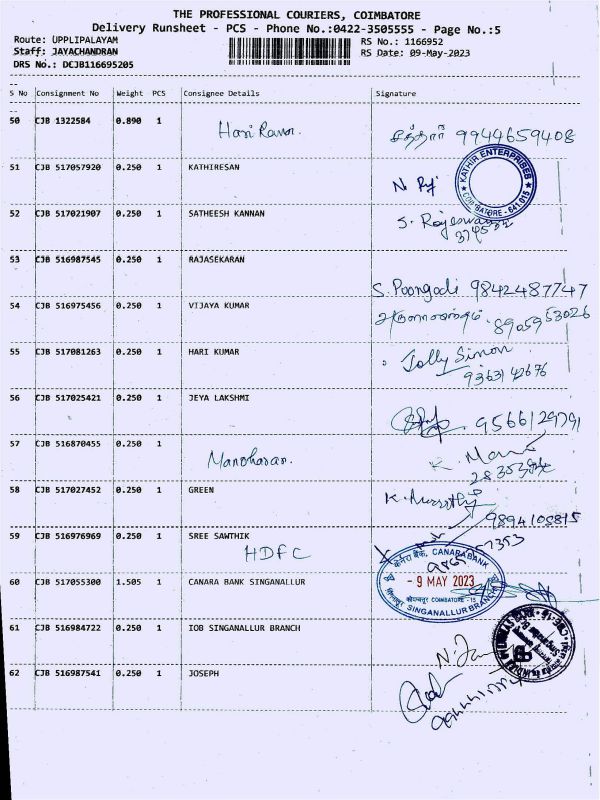 THE PROFESSIONAL COURIERS, COIMBATORE
Delivery Runsheet - PCS - Phone No.:0422-3505555 - Page No.:5
Route: UPPLIPALAYAM
RS No.: 1166952
Staff: JAYACHANDRAN
RS Date: 09-May-2023
DRS No.: DCJB116695205
S No Consignment No Weight PCS Consignee Details Signature
50 CJB 1322584 0.890 1 Hari Ram 9944659408
51 CJB 517057920 0.250 1 KATHIRESAN
KATHIR ENTERPRISES
COIMBATORE - 641 015
52 CJB 517021907 0.250 1 SATHEESH KANNAN S. Rajeswari
53 CJB 516987545 0.250 1 RAJASEKARAN S. Poongodi 9842487747
54 CJB 516975456 0.250 1 VIJAYA KUMAR 8905953026
55 CJB 517081263 0.250 1 HARI KUMAR Jolly Simon
9363142676
56 CJB 517025421 0.250 1 JEYA LAKSHMI 9566129791
57 CJB 516870455 0.250 1 Manoharan. K. Mano
58 CJB 517027452 0.250 1 GREEN
9894108815
59 CJB 516976969 0.250 1 SREE SAWTHIK
HDFC
60 CJB 517055300 1.505 1 CANARA BANK SINGANALLUR
केनरा बैंक, CANARA BANK
- 9 MAY 2023
कोयम्बत्तूर COIMBATORE - 15
SINGANALLUR BRANCH
61 CJB 516984722 0.250 1 IOB SINGANALLUR BRANCH
62 CJB 516987541 0.250 1 JOSEPH